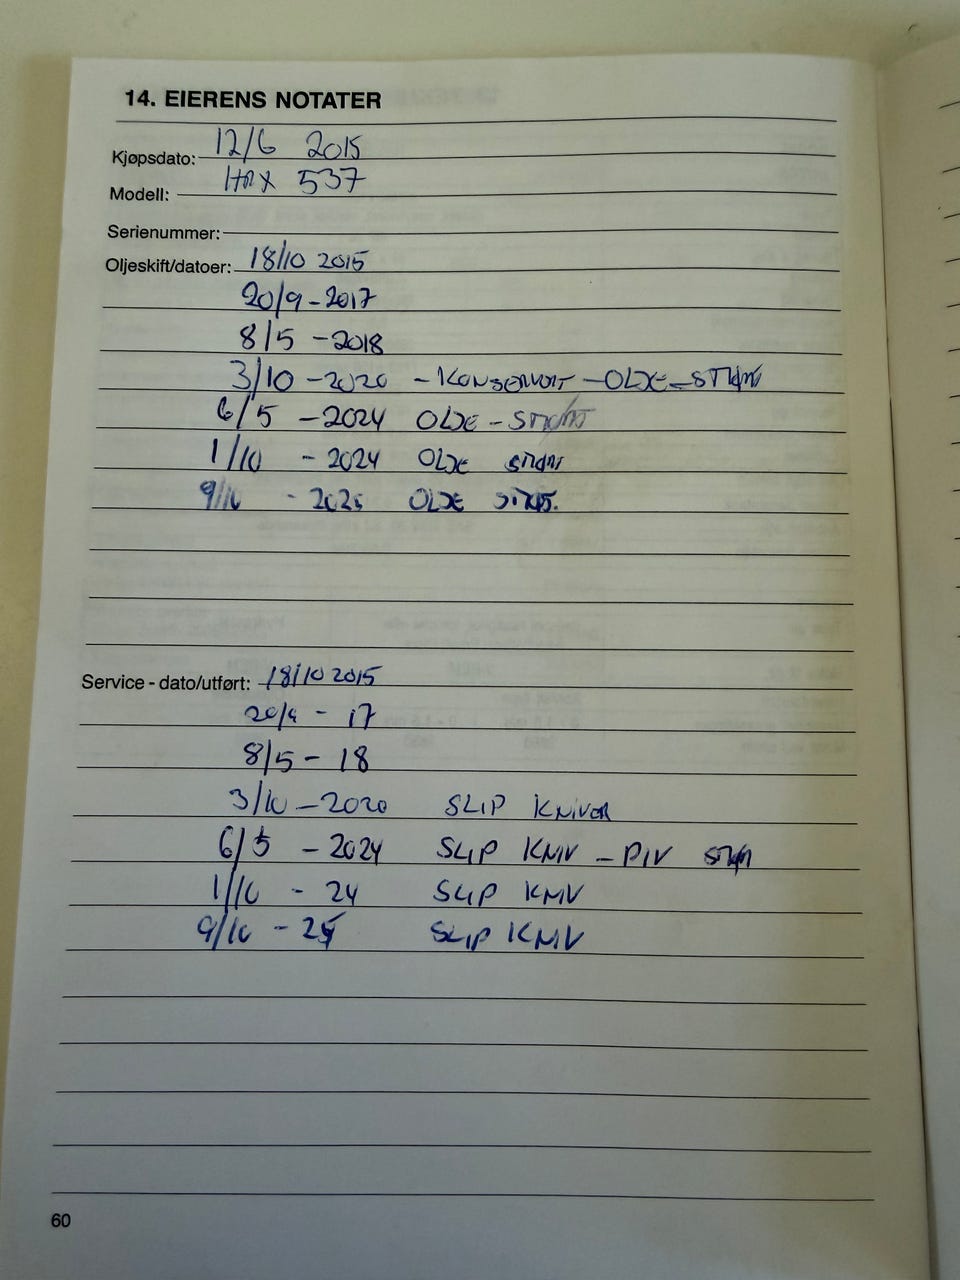 14. EIERENS NOTATER
Kjøpsdato: 12/6 2015
Modell: HRX 537
Serienummer:
Oljeskift/datoer: 18/10 2015
20/9 - 2017
8/5 - 2018
3/10 - 2020 - KONSERVERT - OLJE -
6/5 - 2024 OLJE -
1/10 - 2024 OLJE
9/10 - 2025 OLJE
Service - dato/utført: 18/10 2015
20/9 - 17
8/5 - 18
3/10 - 2020 SLIP KNIVER
6/5 - 2024 SLIP KNIV - DIV
1/10 - 24 SLIP KNIV
9/10 - 25 SLIP KNIV
60